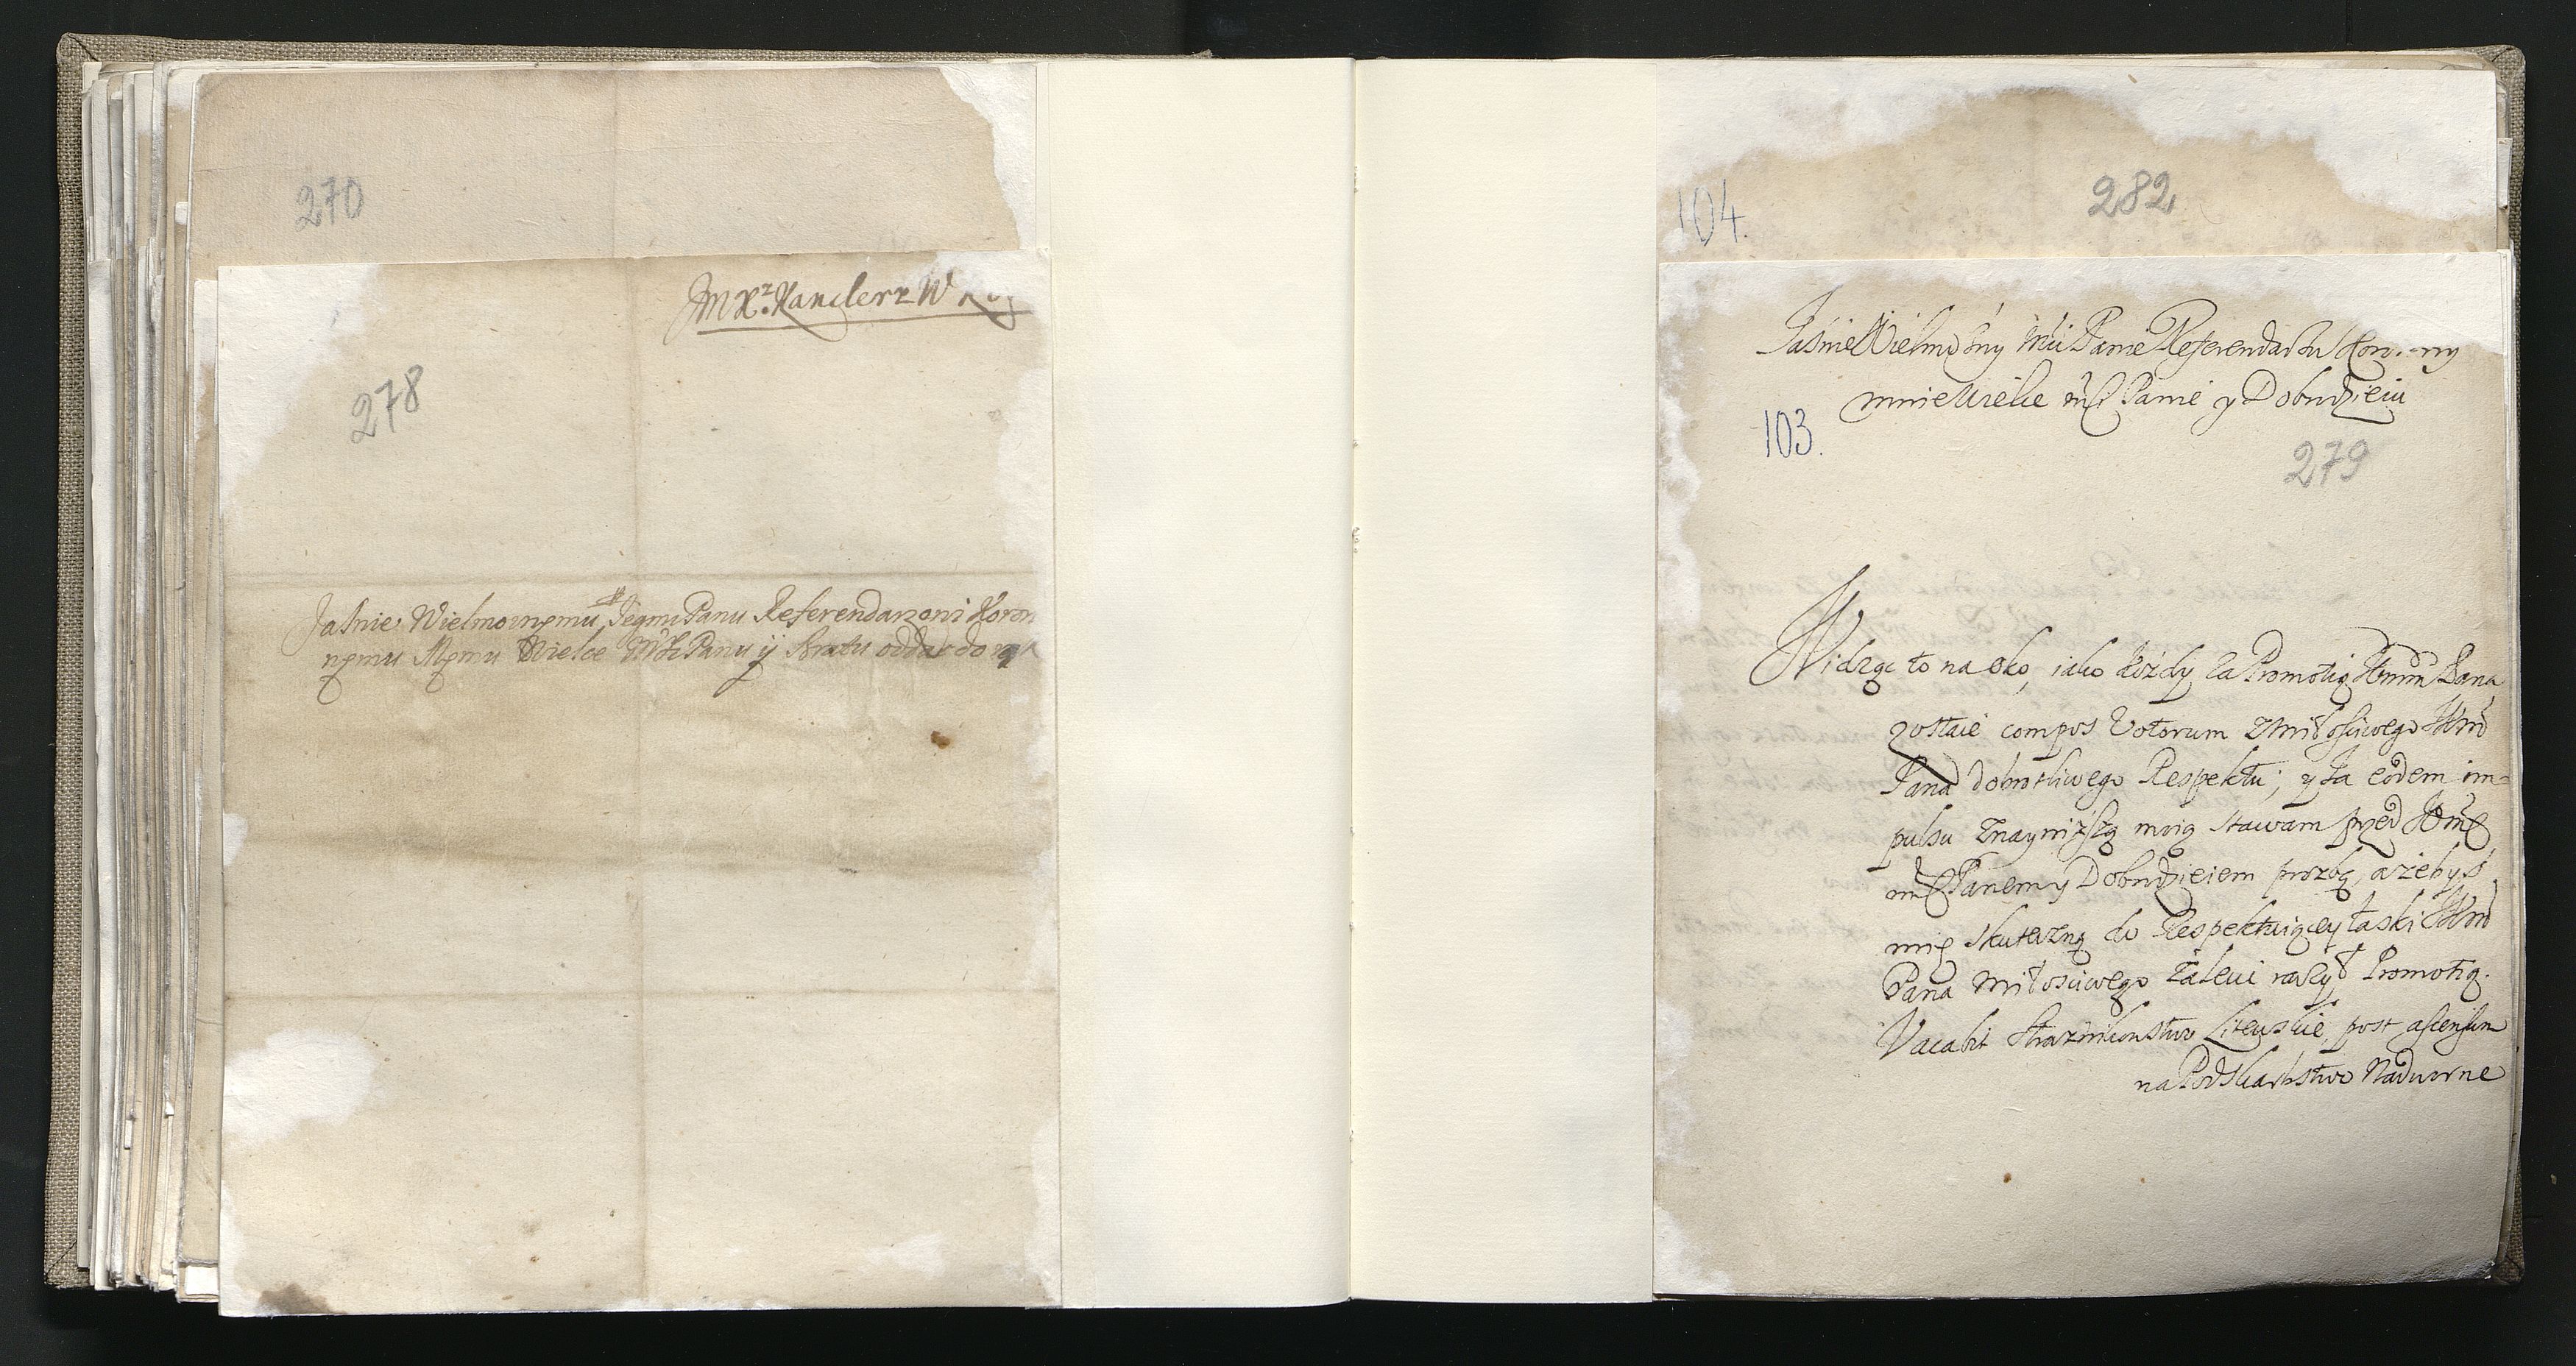 270
JM X.z Kanclerz W
278
Jaśnie Wielmożnemu Jegmi Panu Referendarzowi Koron
nęmu Męmu Wielce Panu ij Bratu oddać do rąk
104.
282
Jaśnie Wielmożny Mci Panie Referendarzu Koronny
mnie Wielce mćz Panie y Dobrodzieiu
103.
279
Widząc to na oko, iako każdy za Promotią Pana
zostaie compos Votorum z Miłosciwego
Pana dobrotliwego Respektu; y Ja eodem im=
pulsu z nayniższą moią stawam przed
mćz Panem y Dobrodzieiem prozbą, ażebyś
mię skuteczną do Respektuiącey łaski
Pana Miłosciwego zalecić raczył Promotią.
Vacabit Strażnikowstwo Litewskie, post ascensum
na Podskarbstwo Nadworne